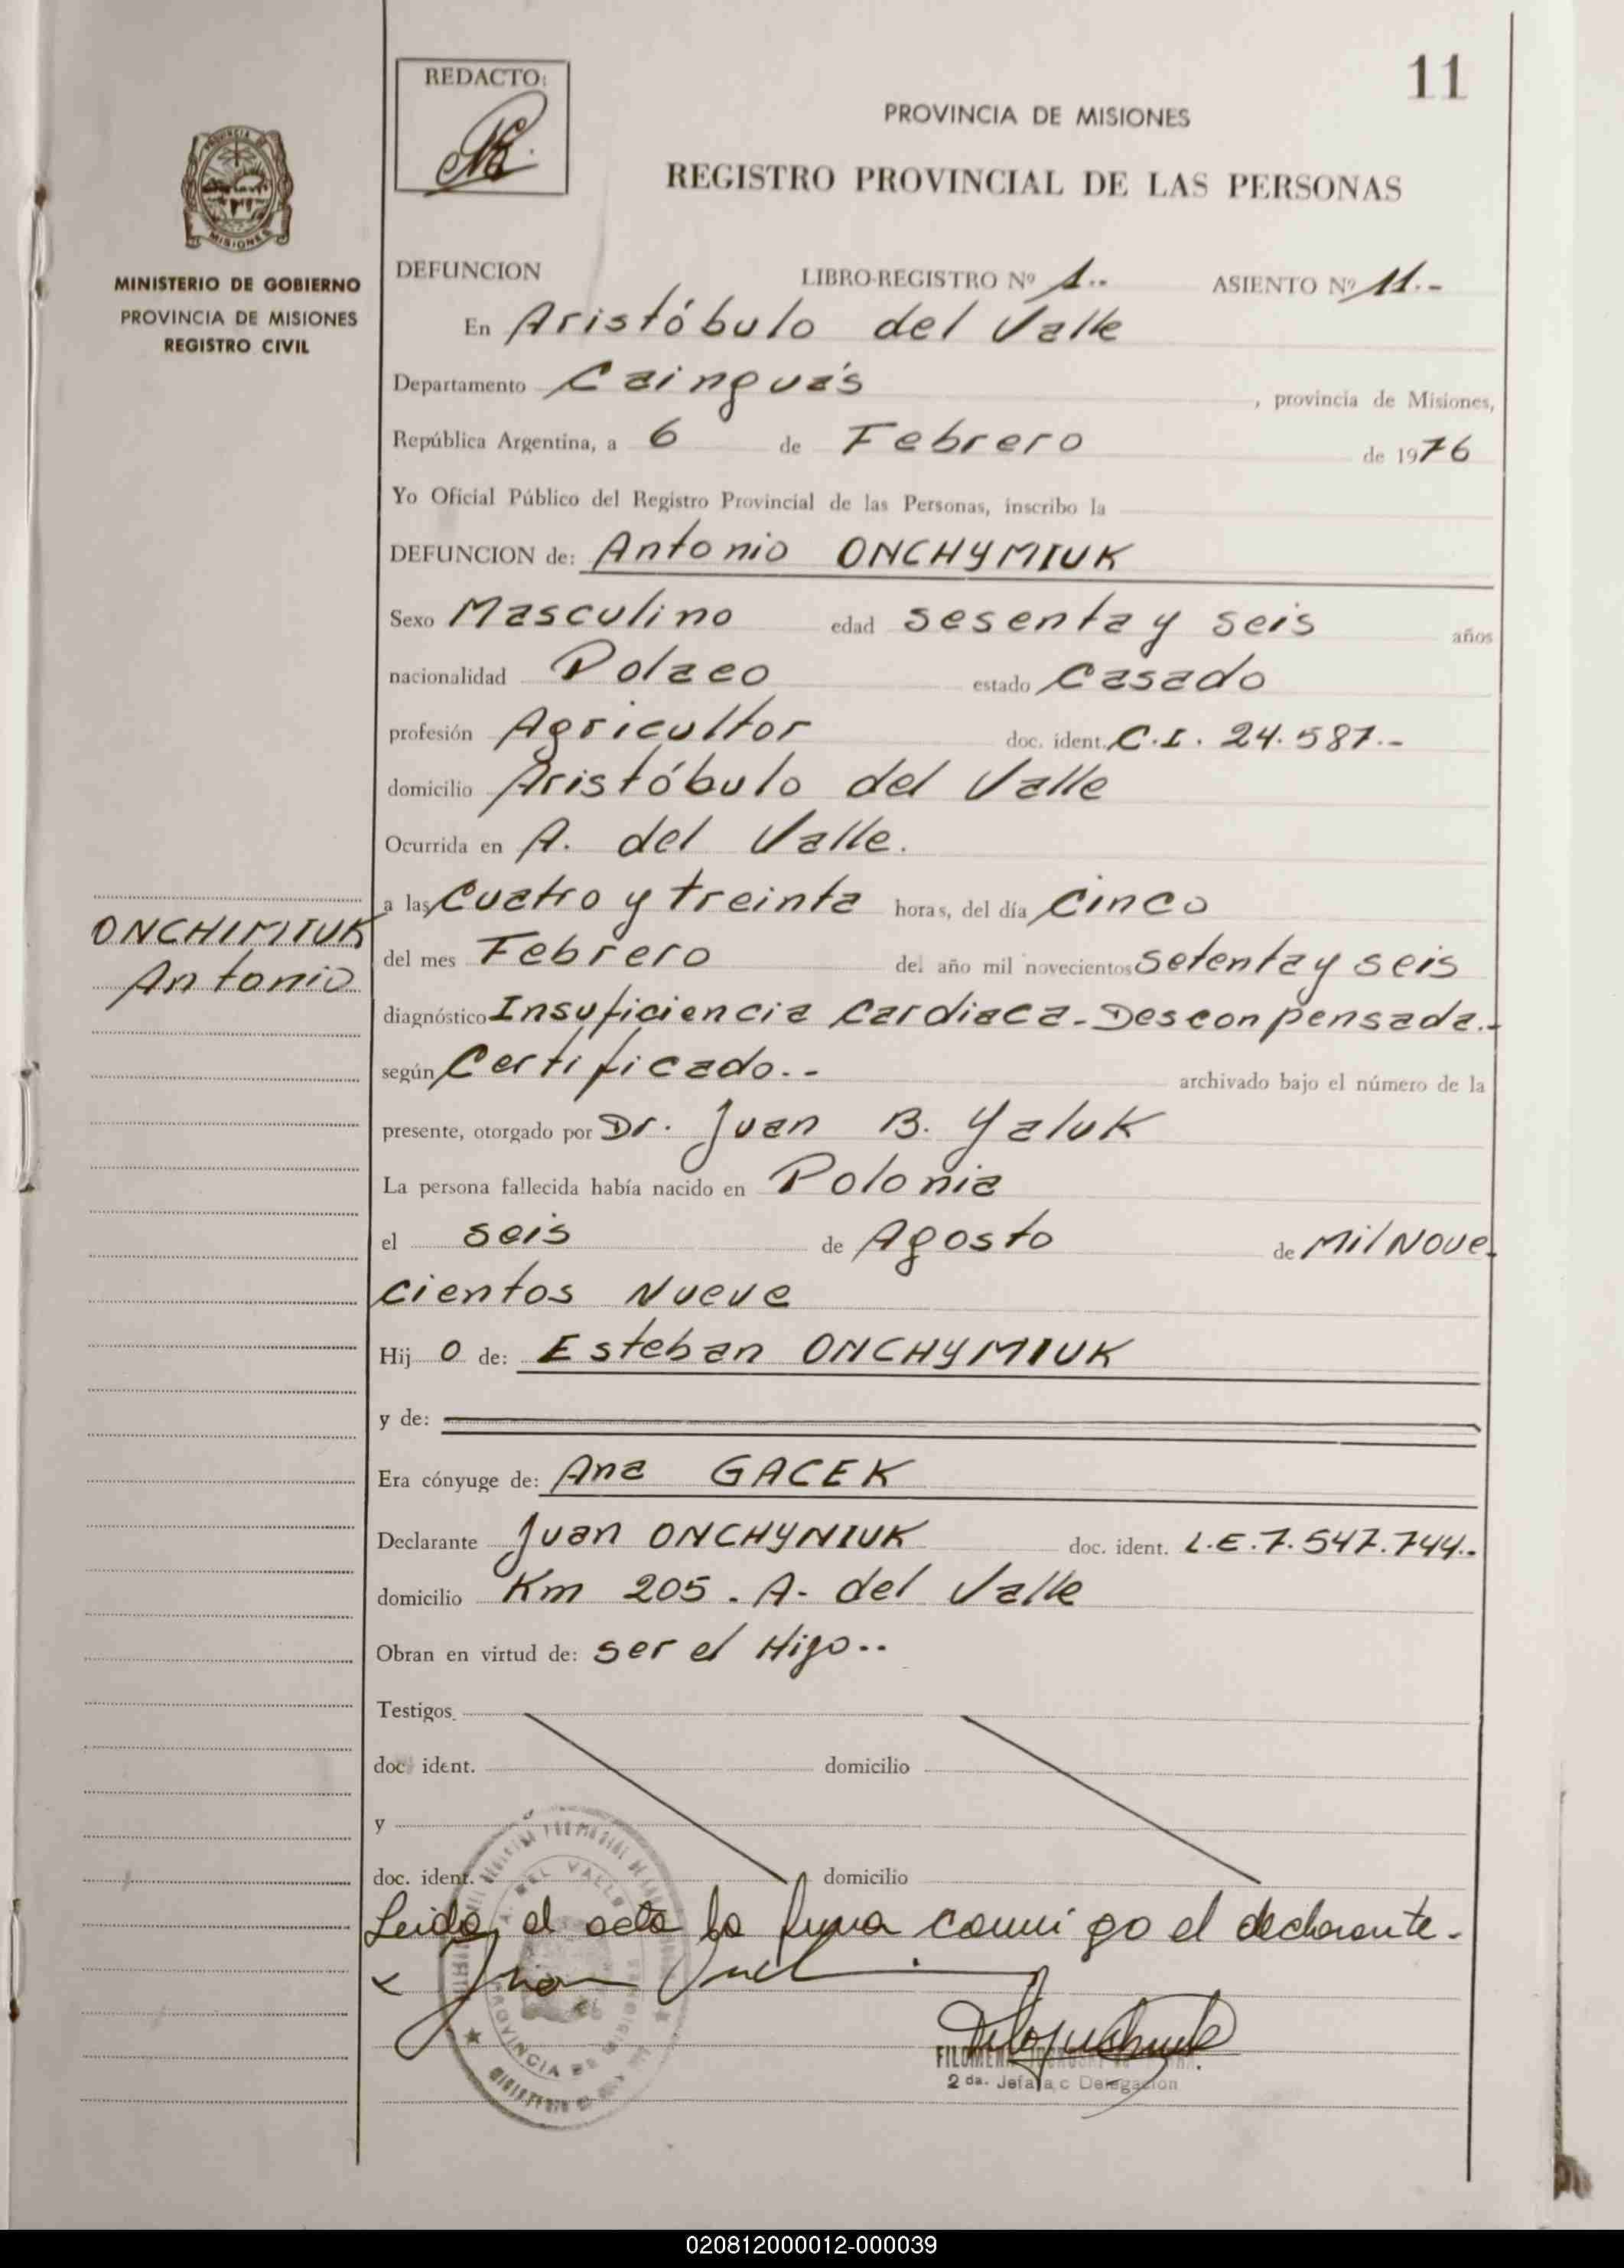 11
REDACTO:
PROVINCIA DE MISIONES
REGISTRO PROVINCIAL DE LAS PERSONAS
MISIONES
MINISTERIO DE GOBIERNO
PROVINCIA DE MISIONES
REGISTRO CIVIL
DEFUNCION LIBRO-REGISTRO Nº 1.- ASIENTO Nº 11.-
En Aristóbulo del Valle
Departamento Cainguás, provincia de Misiones,
República Argentina, a 6 de Febrero de 1976
Yo Oficial Público del Registro Provincial de las Personas, inscribo la
DEFUNCION de: Antonio ONCHYMIUK
Sexo Masculino edad sesenta y seis años
nacionalidad Polaco estado Casado
profesión Agricultor doc. ident. C.I. 24.587.-
domicilio Aristóbulo del Valle
Ocurrida en A. del Valle.
a las Cuatro y treinta horas, del día Cinco
del mes Febrero del año mil novecientos Setenta y seis
diagnóstico Insuficiencia Cardiaca-Desconpensada.-
según Certificado.- archivado bajo el número de la
presente, otorgado por Dr. Juan B. Yaluk
La persona fallecida había nacido en Polonia
el seis de Agosto de Mil Nove-
cientos Nueve
Hij o de: Esteban ONCHYMIUK
y de:
Era cónyuge de: Ana GACEK
Declarante Juan ONCHYNIUK doc. ident. L.E.7.547.744.-
domicilio Km 205. A. del Valle
Obran en virtud de: ser el Hijo.-
Testigos
doc. ident. domicilio
y
doc. ident. domicilio
Leida el acta la firma conmigo el declarante.-
ONCHIMIUK
Antonio
A. DEL VALLE
PROVINCIA DE MISIONES
FILOMENA
2 da. Jefa a c Delegacion
020812000012-000039